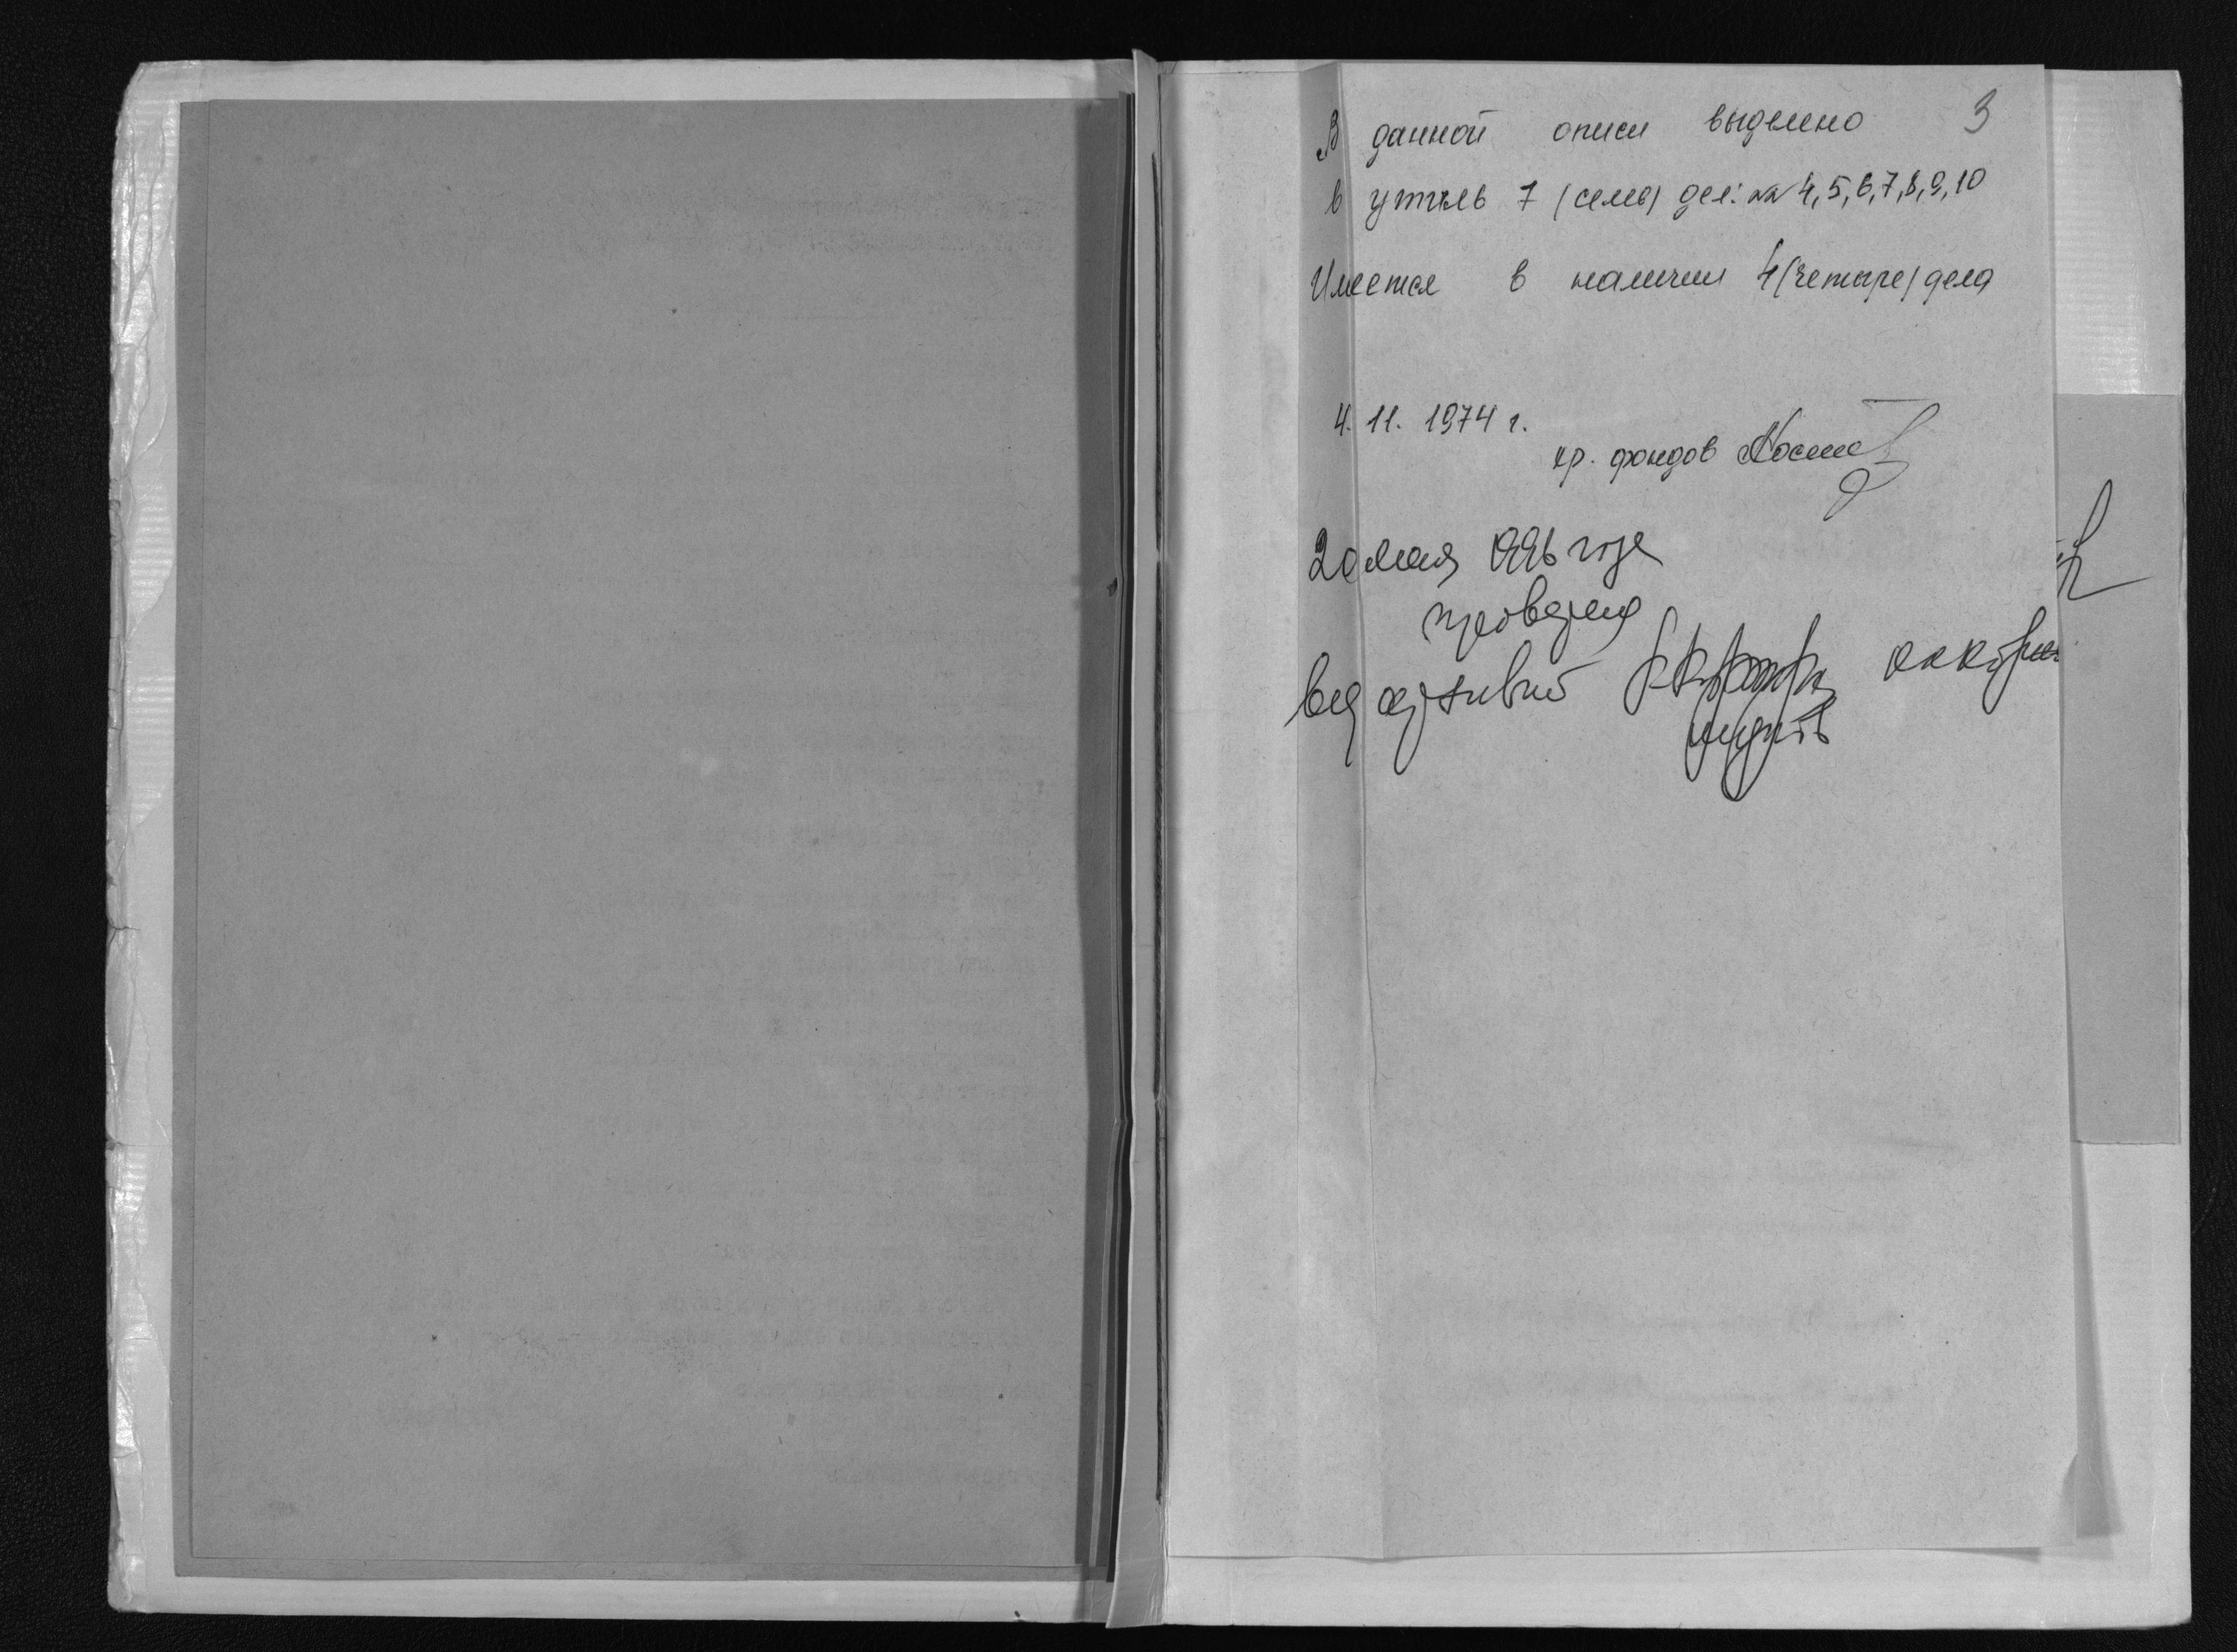 3
В данной описи выделено
в утиль 7 (семь) дел: №№ 4,5,6,7,8,9,10
Имеется в наличии 4 (четыре) дела
4. 11. 1974 г.
хр. фондов
20 мая 1996 года
проверена
вед архивист